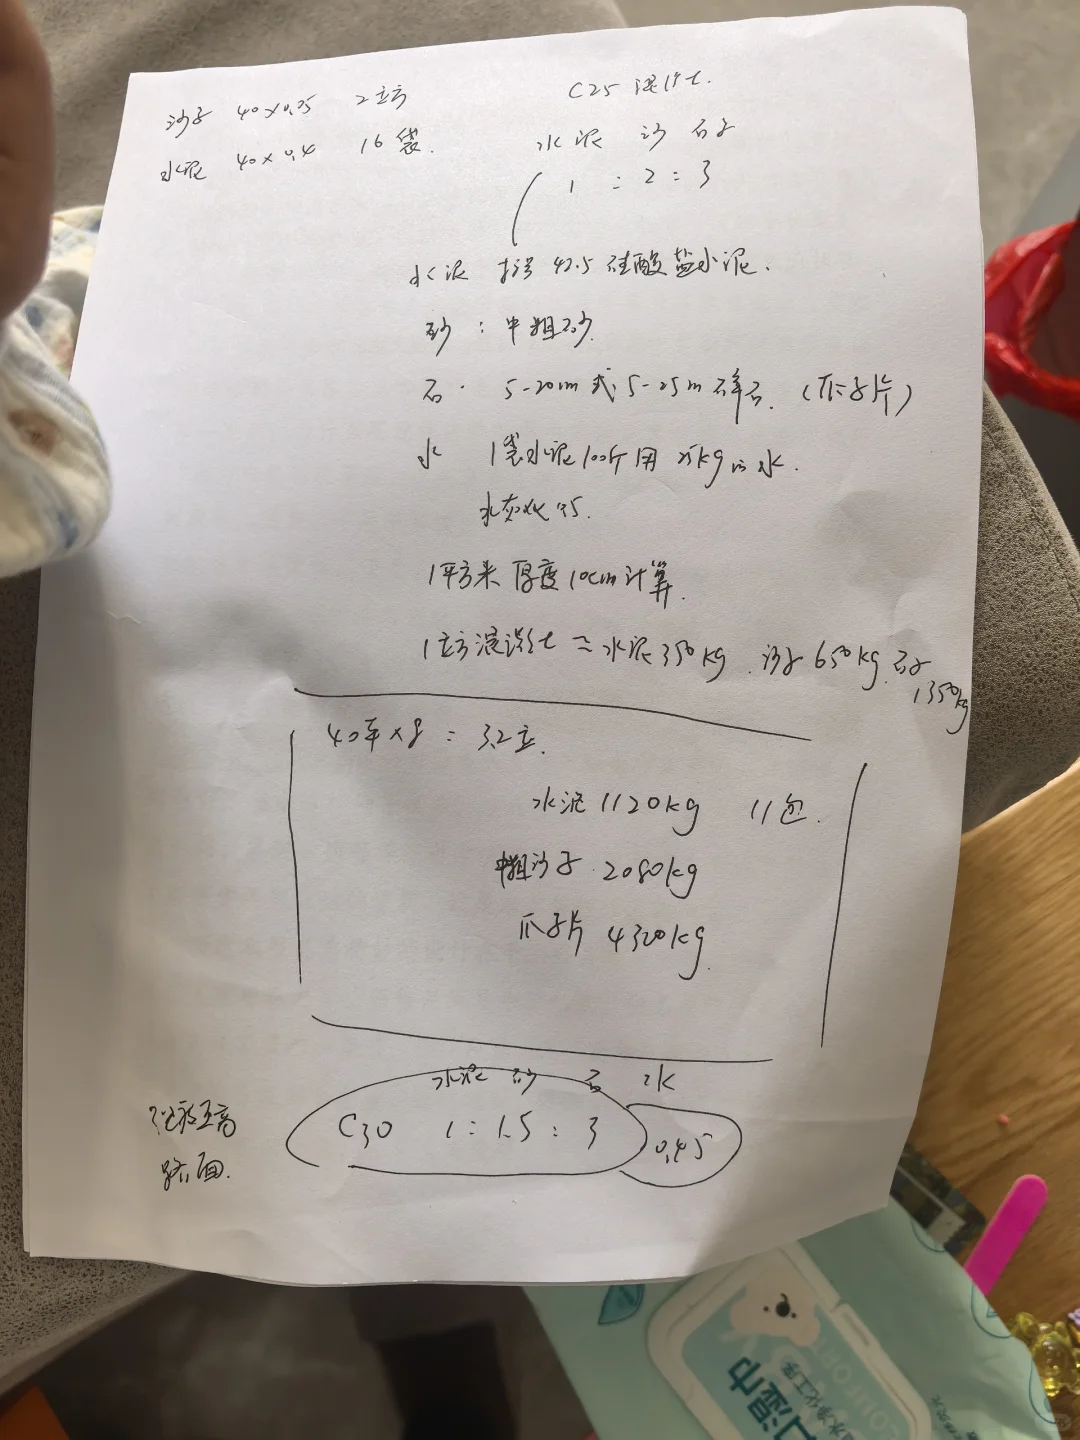 沙子 40×0.05 2立方
水泥 40×0.4 16袋.
C25 混凝土.
水泥 沙 石子
1 : 2 : 3
水泥 标号 42.5 硅酸盐水泥.
砂 : 中粗砂.
石. 5-20m 或 5-25m 碎石. (瓜子片)
水 1袋水泥100斤用 25kg的水.
水灰比 0.5.
1平方米 厚度10cm计算.
1立方混凝土 = 水泥350kg. 沙子650kg. 石子1350kg
40平×8 = 3.2立.
水泥 1120kg 11包.
中粗沙子 2080kg
瓜子片 4320kg.
水泥 砂 石 水
C30 1 : 1.5 : 3 0.45
路面.
湿巾